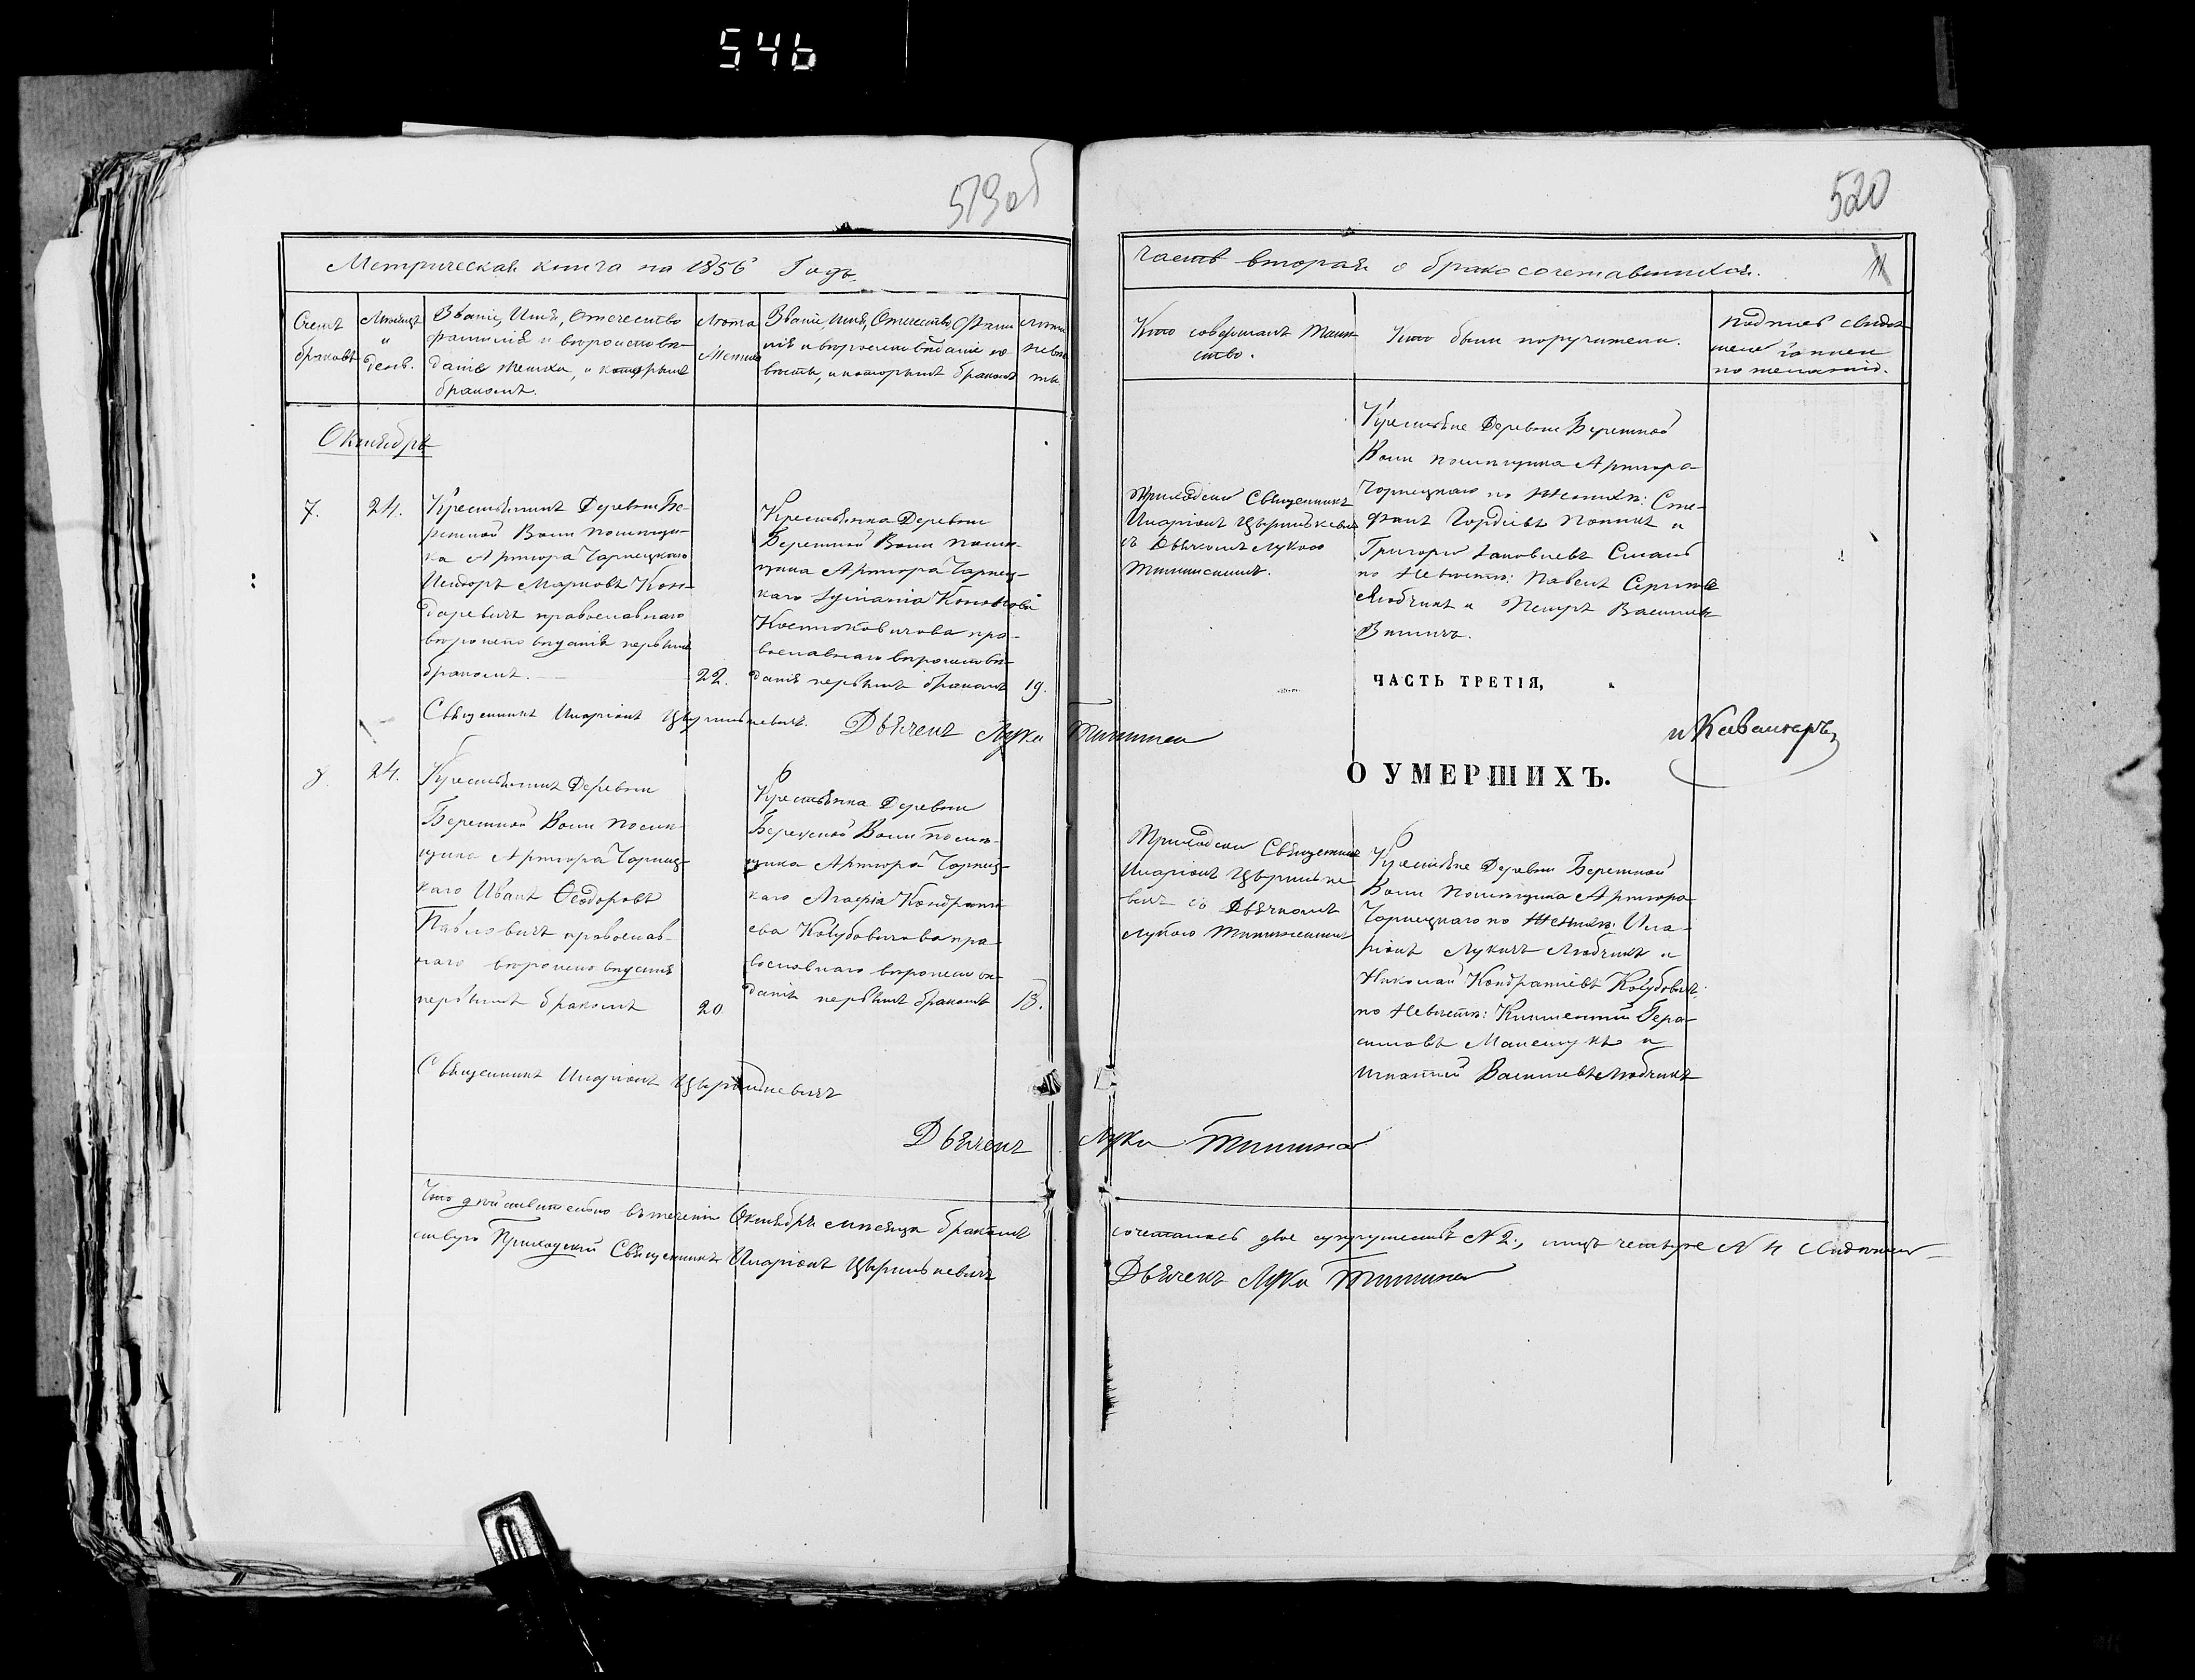 546
519об
520
Метрическая книга на 1856 Годъ
часть вторая о бракосочетавшихся.
11
Счетъ браковъ
Мѣсяцъ и день.
Званіе, Имя, Отечество
фамилія и вѣроисповѣ-
даніе жениха, и которымъ
бракомъ.
Лѣта
жениха
Званіе, Имя, Отечество, Фами
лія и вѣроисповѣданіе не-
вѣсты, и которымъ бракомъ
Лѣта
невѣс
ты.
Кто совершалъ Таин-
ство.
Кто были поручители.
подпись свидѣ-
телей
по желанію.
Октябрь
7.
24.
Крестьянинъ Деревни Бе-
режной Воли помѣщи-
ка Артюра Чарнецкаго
Исидоръ Марковъ Кон-
даревичъ православнаго
вѣроисповѣданія первымъ
бракомъ.
22.
Крестьянка Деревни
Бережной Воли помѣ-
щика Артюра Чарнец-
каго
Костюковичова пра-
вославнаго вѣроисповѣ-
данія первымъ бракомъ
19.
Приходскій Священникъ
Иларіонъ
съ Дьячкомъ Лукою
Крестьяне Деревни Бережной
Воли помѣщика Артюра
Чарнецкаго по Женихѣ: Сте-
фанъ Гордіевъ и
Григорій Іаковлевъ
по Невѣстѣ: Павелъ
Любчикъ и Петръ Васильевъ
ЧАСТЬ ТРЕТІЯ,
Священникъ Иларіонъ
Дьячекъ Лука
и Кавалеръ
О УМЕРШИХЪ.
8.
24.
Крестьянинъ Деревни
Бережной Воли помѣ-
щика Артюра Чарнец-
каго Иванъ Ѳеодоровъ
Павловичъ православ-
наго вѣроисповѣданія
первымъ бракомъ
20
Крестьянка Деревни
Бережной Воли помѣ-
щика Артюра Чарнец-
каго Агафія Кондрать-
ева Кокубовичова пра-
вославнаго вѣроисповѣ-
данія первымъ бракомъ
18.
Приходскій Священникъ
Иларіонъ
съ Дьячкомъ
Лукою
Крестьяне Деревни Бережной
Воли помѣщика Артюра
Чарнецкаго по Женихѣ: Ила-
ріонъ Лукичъ Любчикъ и
Николай Кондратіевъ
по Невѣстѣ: Климентій Гера-
симовъ и
Игнатій Васильевъ Любчикъ
Священникъ Иларіонъ
Дьячекъ Лука
Что дѣйствительно въ теченіи Октября мѣсяца бракомъ
сочетались двое супружествъ N 2., лицъ четыре N 4 свидѣтель-
ствую Приходскій Священникъ Иларіонъ
Дьячекъ Лука